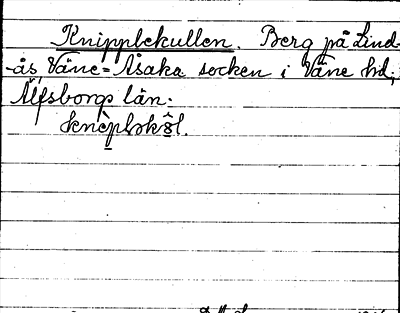 Knipplekullen. Berg på Lind-
-ås, Väne-Åsaka socken i Väne hd,
Älfsborgs län:
knèpləkôl.